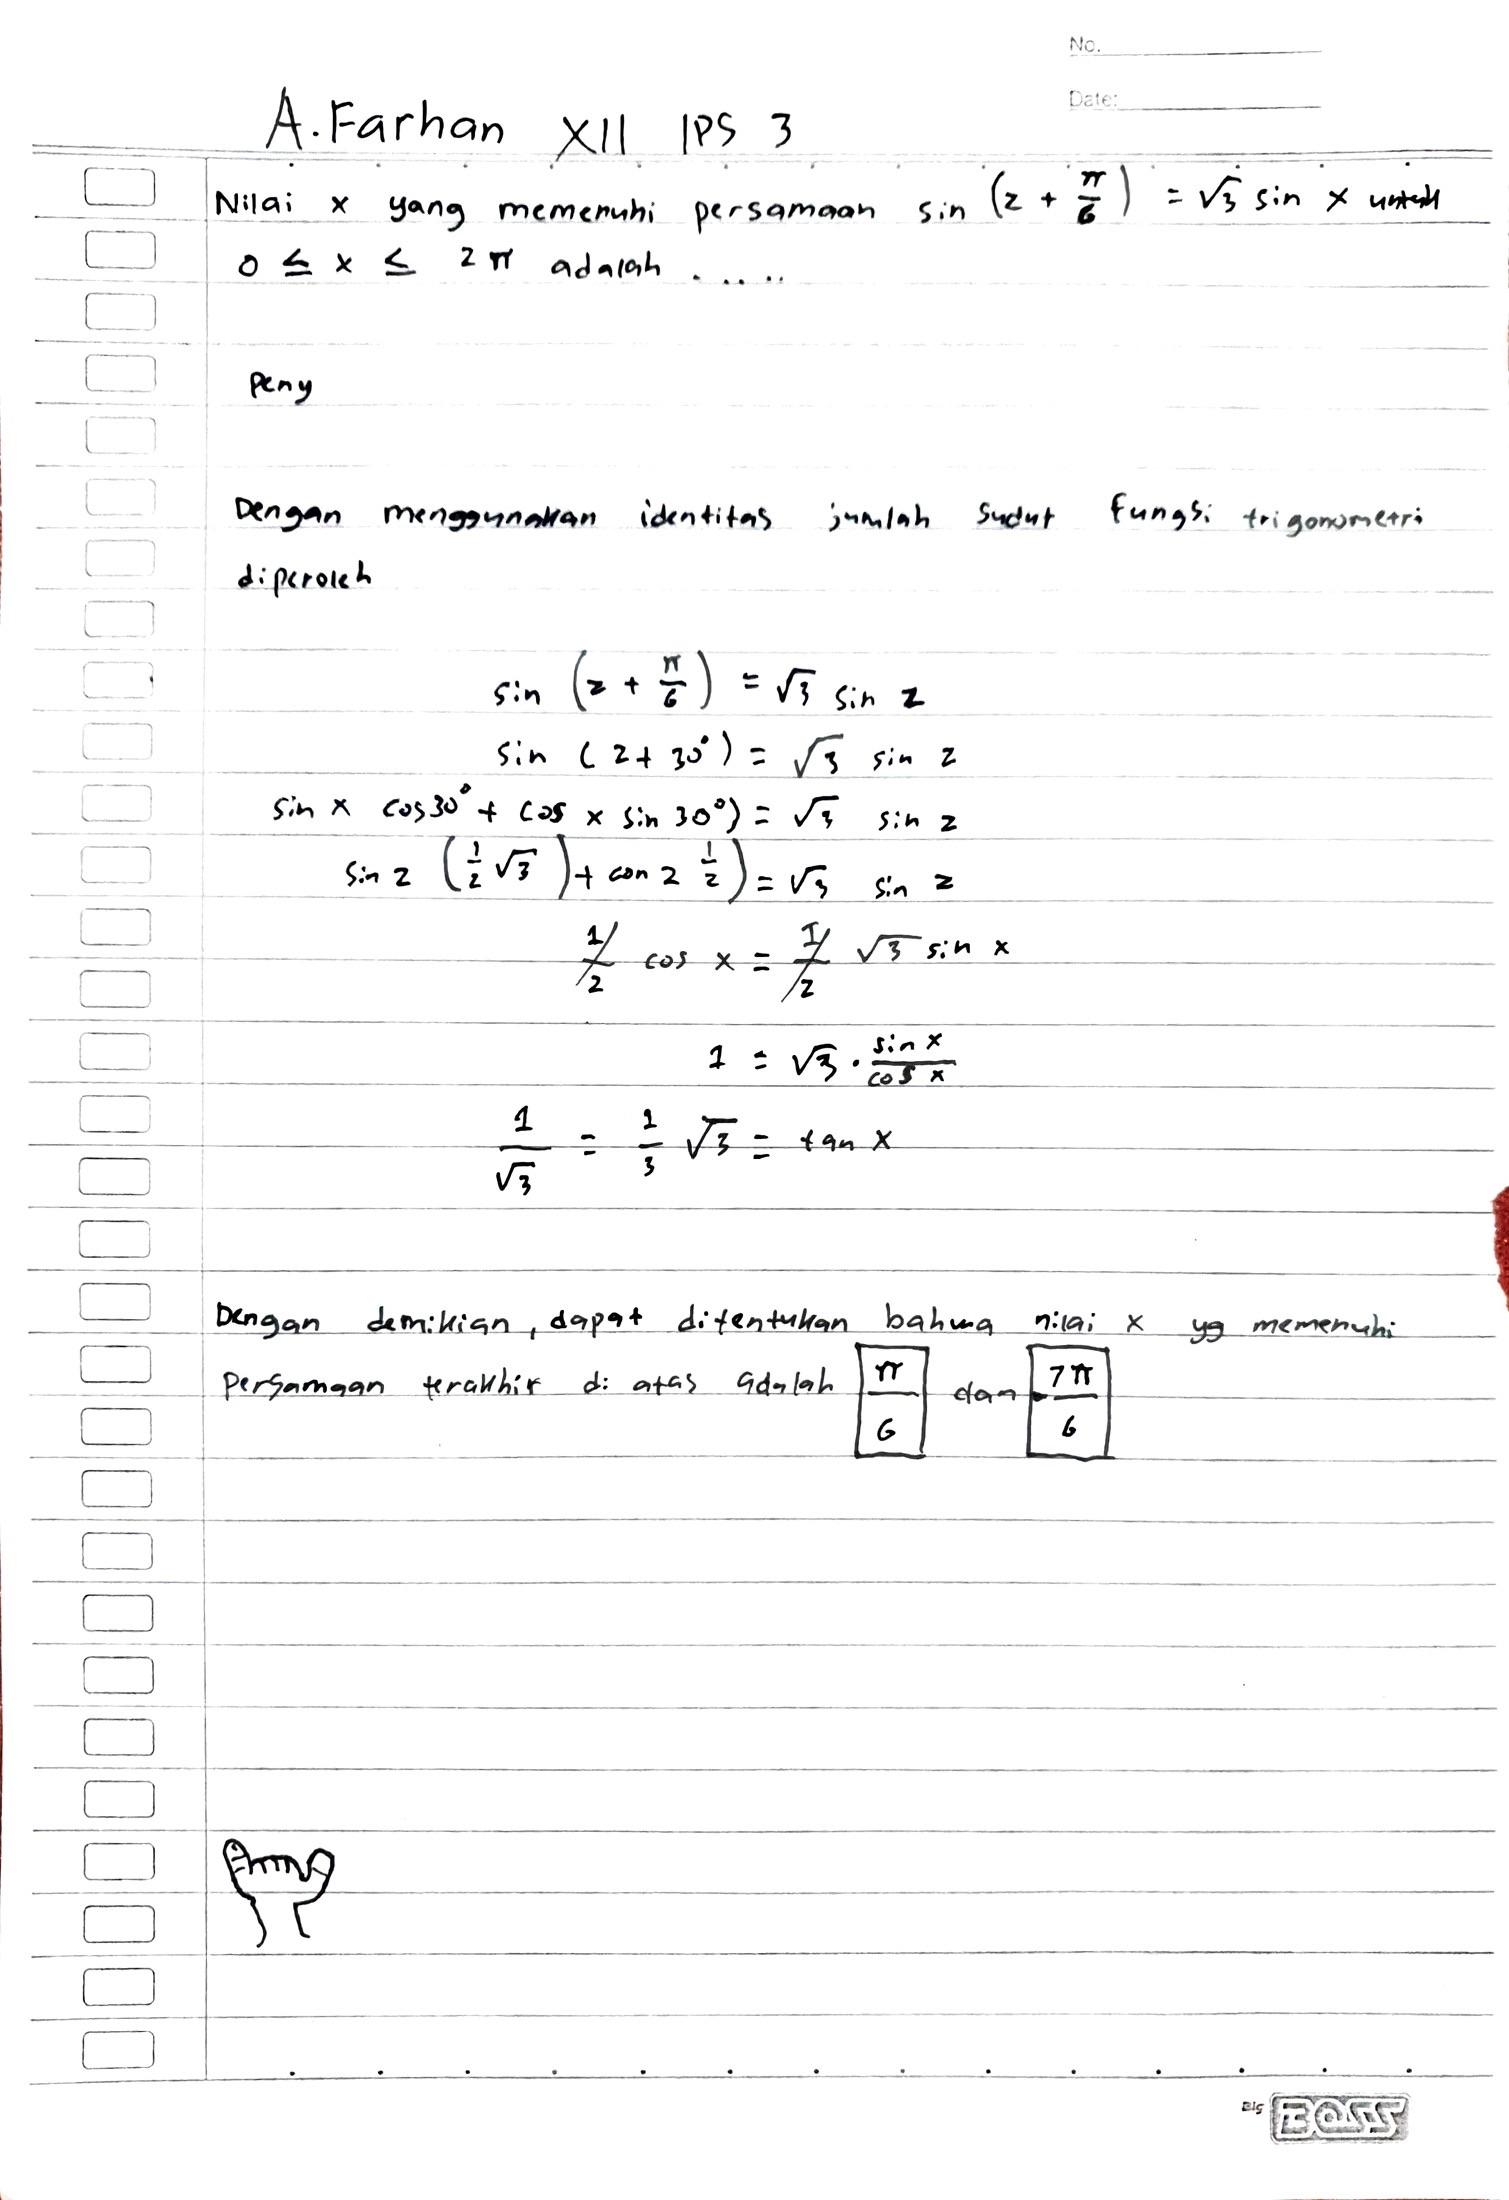 No.
Date:
A. Farhan XII IPS 3
Nilai x yang memenuhi persamaan sin (z + π/6) = √3 sin x untuk
0 ≤ x ≤ 2π adalah .....
Peny
Dengan menggunakan identitas jumlah sudut fungsi trigonometri
diperoleh
sin (z + π/6) = √3 sin z
sin (z + 30°) = √3 sin z
sin x cos 30° + cos x sin 30°) = √3 sin z
sin z (1/2 √3) + con z 1/2) = √3 sin z
1/2 cos x = 1/2 √3 sin x
1 = √3 . sin x/cos x
1/√3 = 1/3 √3 = tan x
Dengan demikian, dapat ditentukan bahwa nilai x yg memenuhi
persamaan terakhir di atas adalah π/6 dan 7π/6
Big BOSS